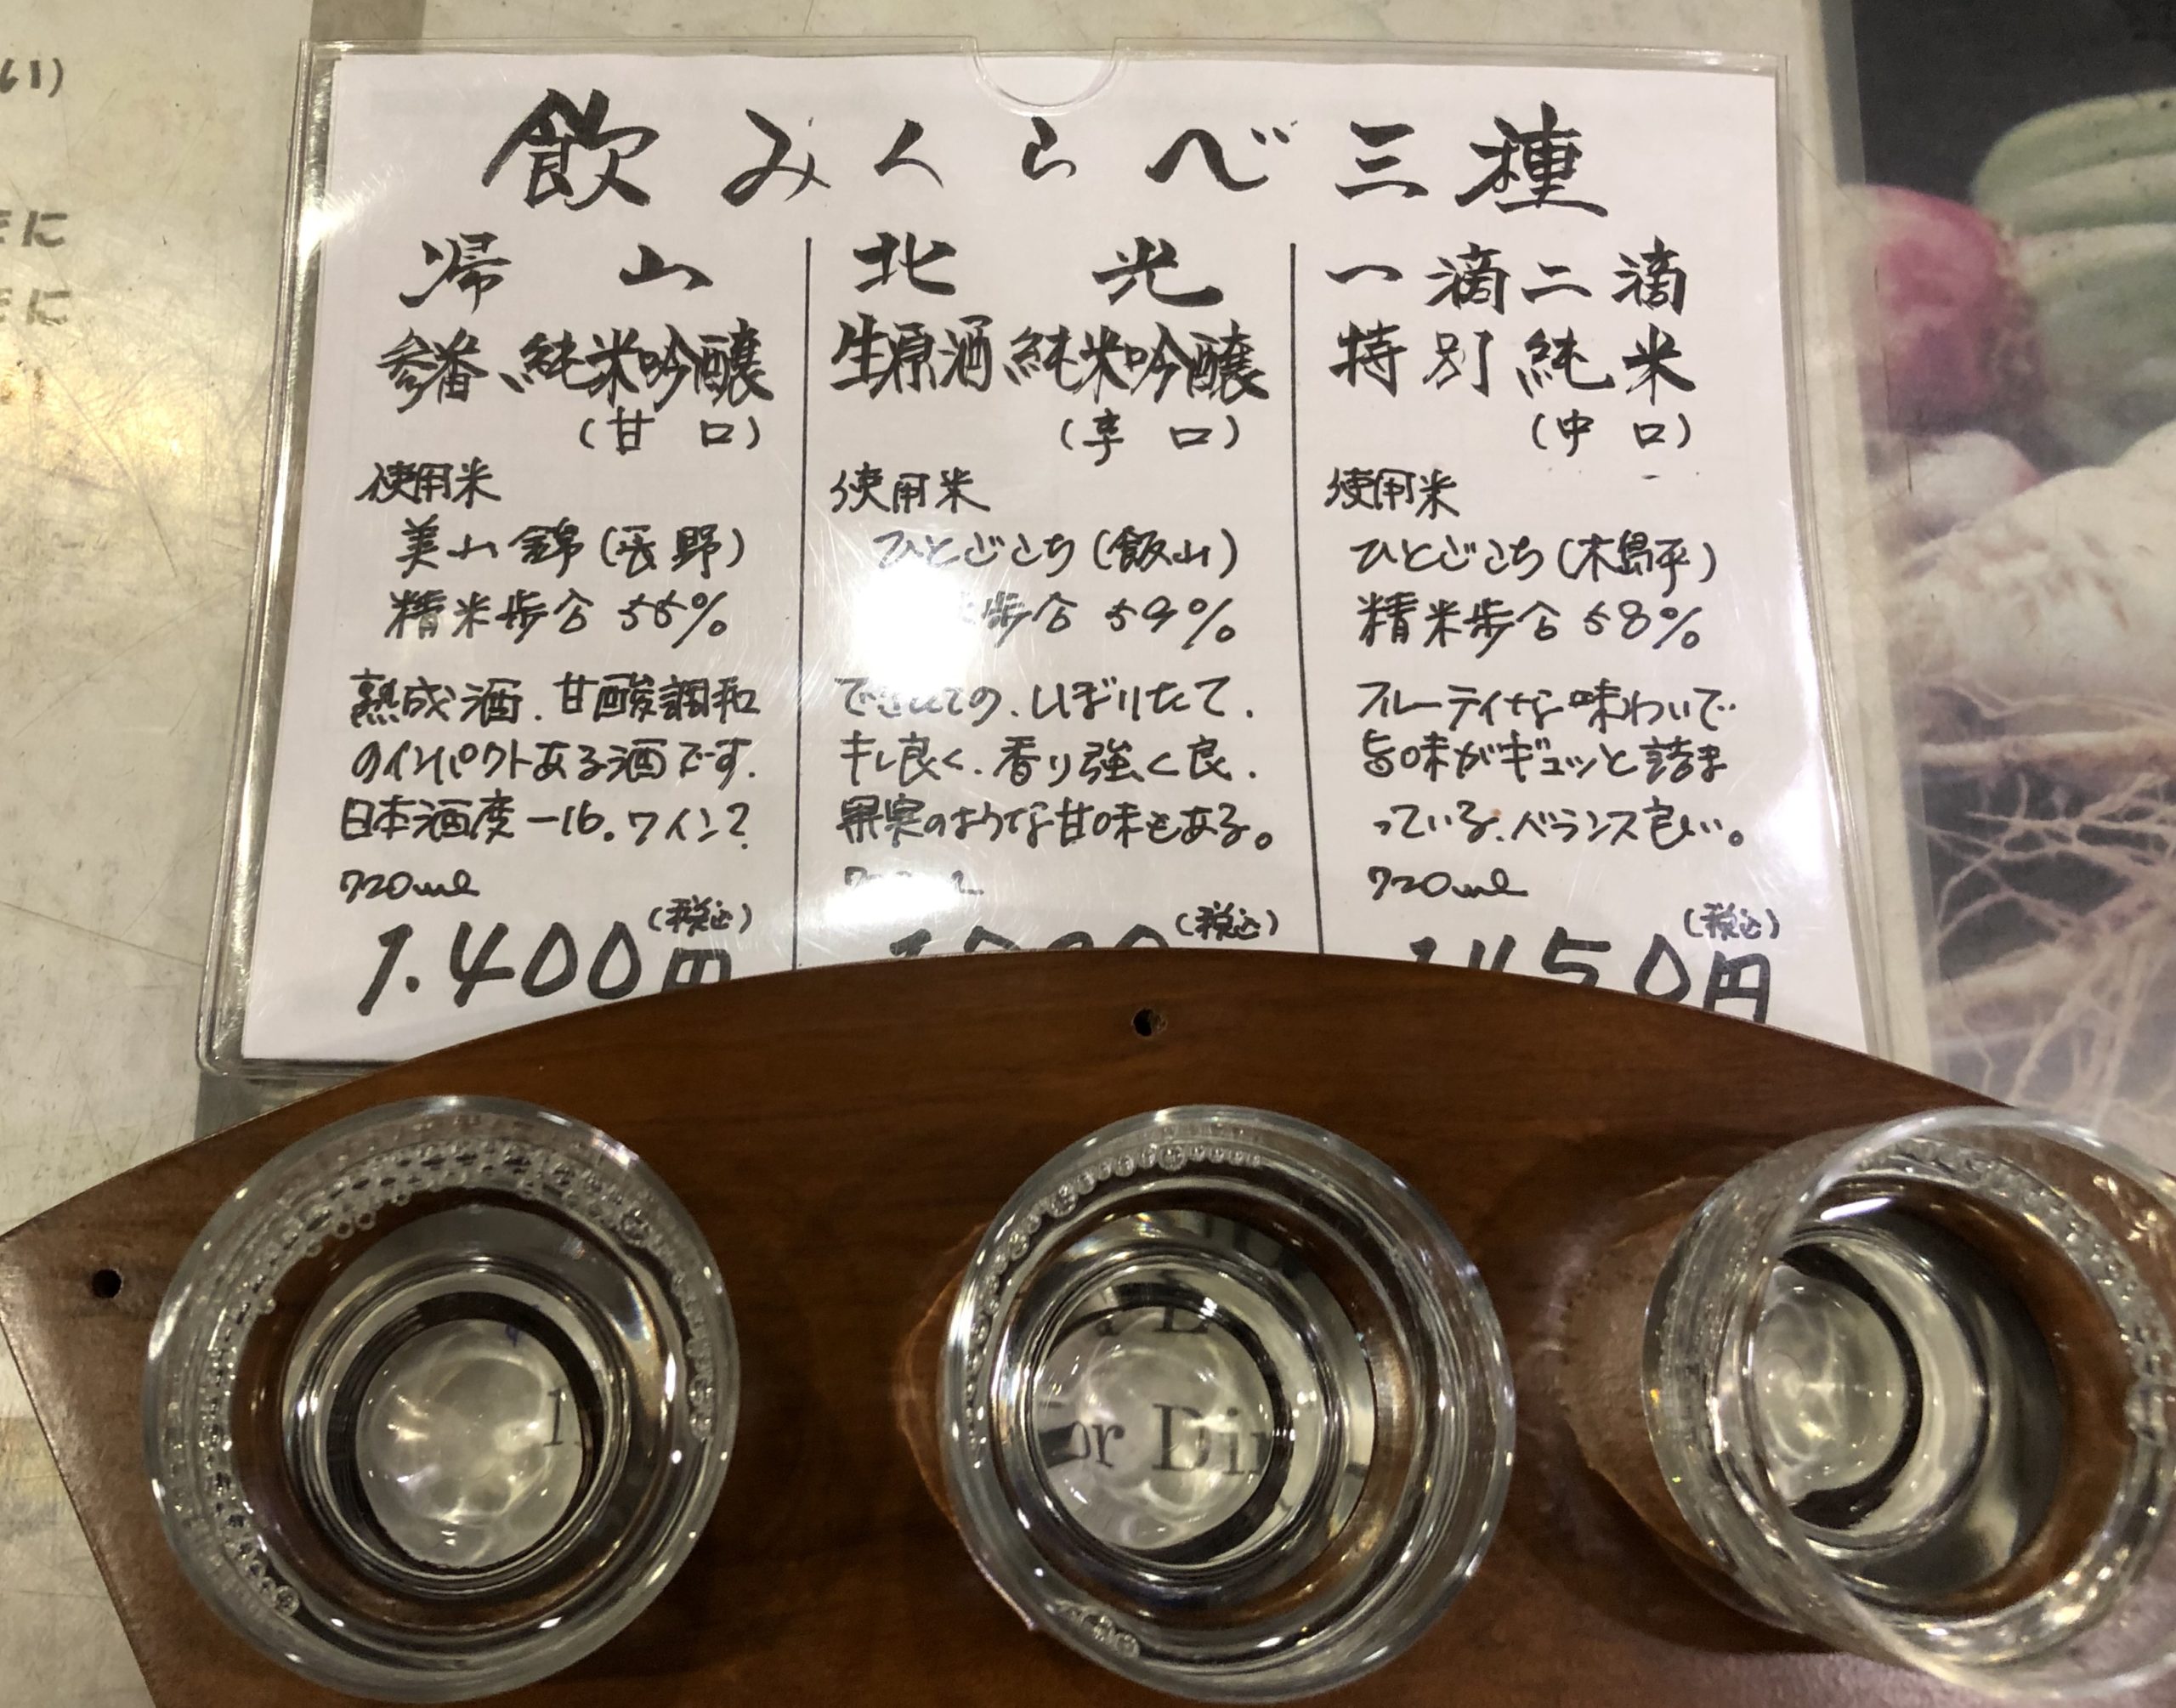 飲みくらべ三種
帰山
参番、純米吟醸
(甘口)
使用米
美山錦(長野)
精米歩合 55%
熟成酒.甘酸調和
のインパクトある酒です.
日本酒度-16。ワイン?
720ml
(税込)
1.400円
北光
生原酒、純米吟醸
(辛口)
使用米
ひとごこち(飯山)
歩合 59%
できたての、しぼりたて.
キレ良く、香り強く良.
果実のような甘味もある。
(税込)
一滴二滴
特別純米
(中口)
使用米
ひとごこち(木島平)
精米歩合 58%
フルーティな味わいで
旨味がギュッと詰ま
っている、バランス良い。
720ml
(税込)
1450円
い)
きに
きに
or Din